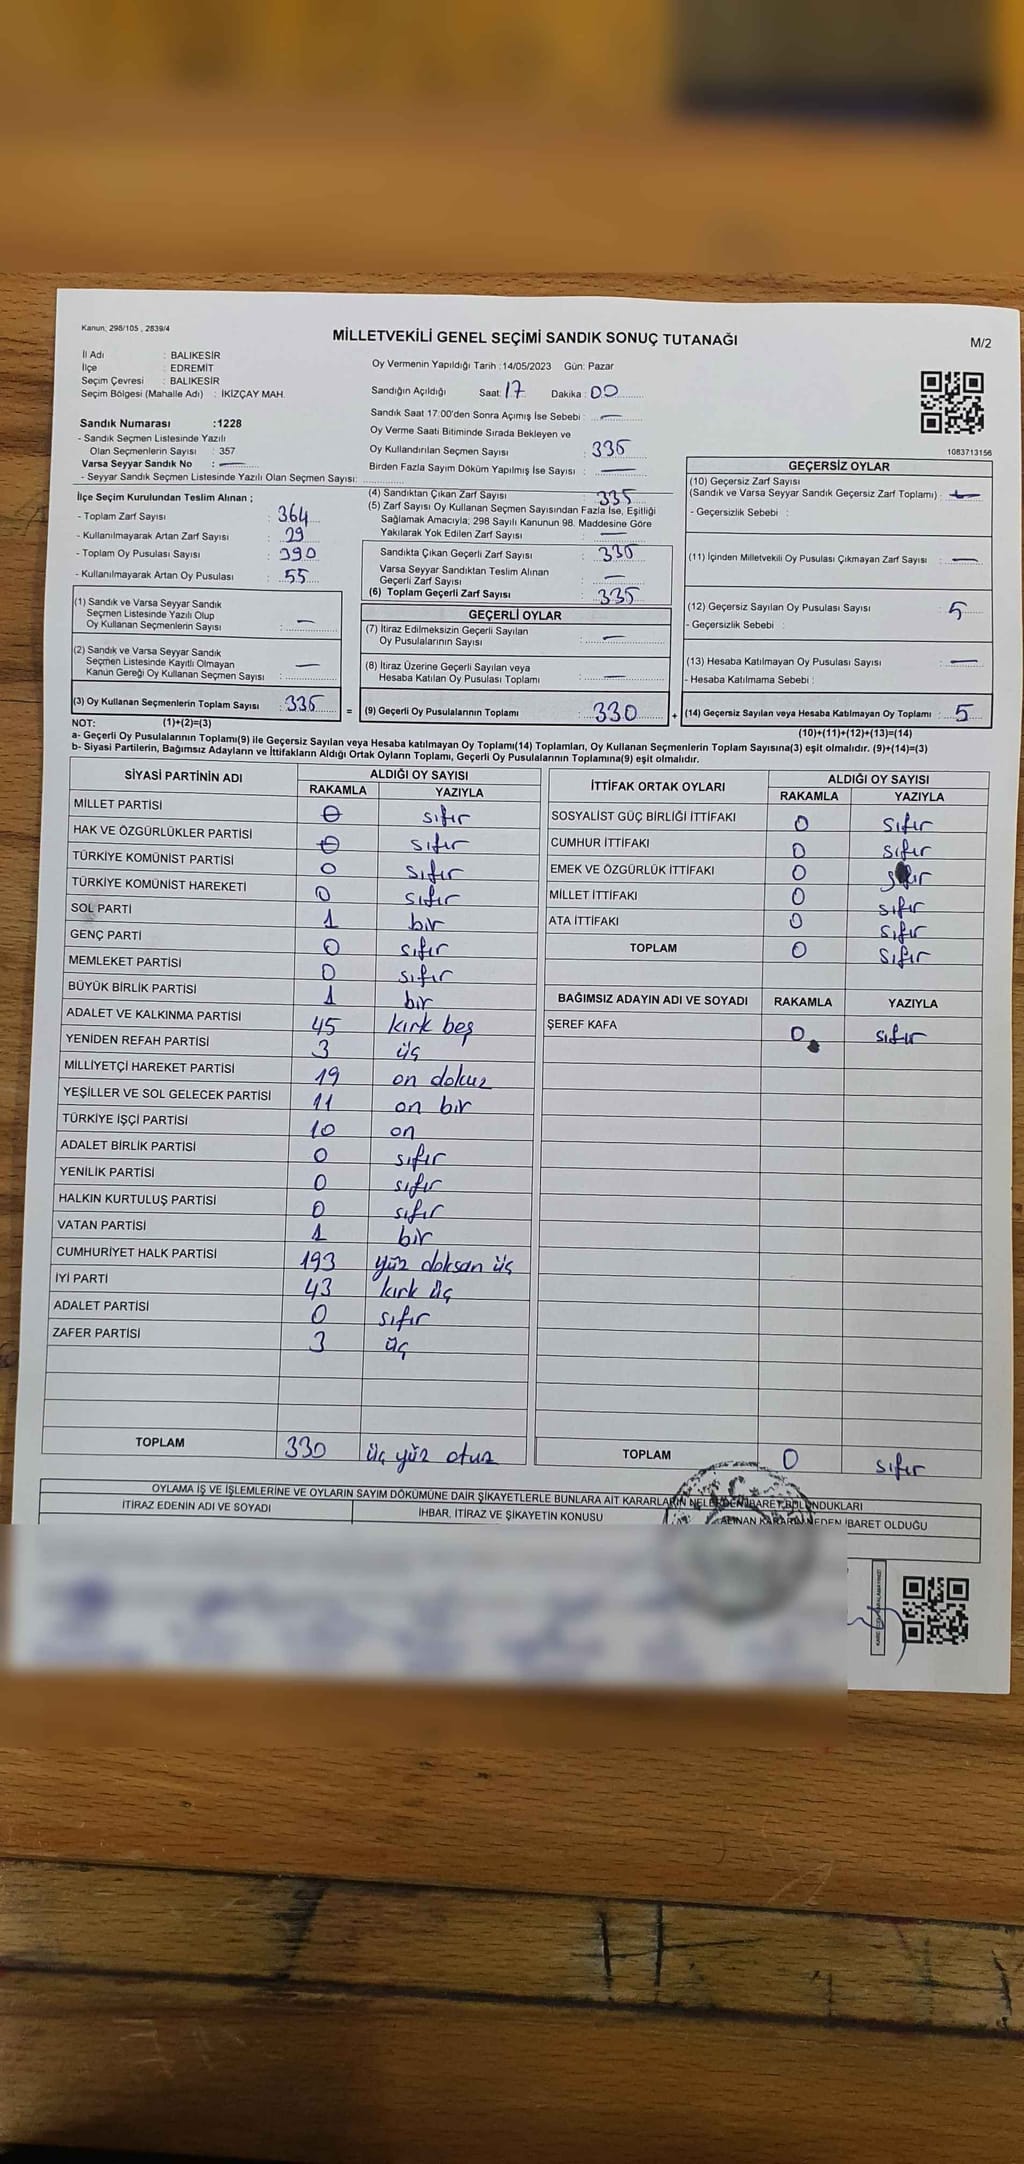 Kanun: 298/105 , 2839/4
MİLLETVEKİLİ GENEL SEÇİMİ SANDIK SONUÇ TUTANAĞI
M/2
İl Adı : BALIKESİR
İlçe : EDREMİT
Seçim Çevresi : BALIKESİR
Seçim Bölgesi (Mahalle Adı) : İKİZÇAY MAH.
Sandık Numarası :1228
- Sandık Seçmen Listesinde Yazılı
Olan Seçmenlerin Sayısı : 357
Varsa Seyyar Sandık No : —
- Seyyar Sandık Seçmen Listesinde Yazılı Olan Seçmen Sayısı:
Oy Vermenin Yapıldığı Tarih :14/05/2023 Gün: Pazar
Sandığın Açıldığı Saat: 17 Dakika : 00
Sandık Saat 17:00'den Sonra Açımış İse Sebebi : —
Oy Verme Saati Bitiminde Sırada Bekleyen ve
Oy Kullandırılan Seçmen Sayısı : 335
Birden Fazla Sayım Döküm Yapılmış İse Sayısı : —
1083713156
İlçe Seçim Kurulundan Teslim Alınan ;
- Toplam Zarf Sayısı : 364
- Kullanılmayarak Artan Zarf Sayısı : 29
- Toplam Oy Pusulası Sayısı : 390
- Kullanılmayarak Artan Oy Pusulası : 55
(1) Sandık ve Varsa Seyyar Sandık
Seçmen Listesinde Yazılı Olup
Oy Kullanan Seçmenlerin Sayısı : —
(2) Sandık ve Varsa Seyyar Sandık
Seçmen Listesinde Kayıtlı Olmayan
Kanun Gereği Oy Kullanan Seçmen Sayısı : —
(3) Oy Kullanan Seçmenlerin Toplam Sayısı : 335 =
(4) Sandıktan Çıkan Zarf Sayısı : 335
(5) Zarf Sayısı Oy Kullanan Seçmen Sayısından Fazla İse, Eşitliği
Sağlamak Amacıyla; 298 Sayılı Kanunun 98. Maddesine Göre
Yakılarak Yok Edilen Zarf Sayısı : —
Sandıkta Çıkan Geçerli Zarf Sayısı : 335
Varsa Seyyar Sandıktan Teslim Alınan
Geçerli Zarf Sayısı : —
(6) Toplam Geçerli Zarf Sayısı : 335
GEÇERLİ OYLAR
(7) İtiraz Edilmeksizin Geçerli Sayılan
Oy Pusulalarının Sayısı : —
(8) İtiraz Üzerine Geçerli Sayılan veya
Hesaba Katılan Oy Pusulası Toplamı : —
(9) Geçerli Oy Pusulalarının Toplamı : 330 +
GEÇERSİZ OYLAR
(10) Geçersiz Zarf Sayısı
(Sandık ve Varsa Seyyar Sandık Geçersiz Zarf Toplamı) : —
- Geçersizlik Sebebi :
(11) İçinden Milletvekili Oy Pusulası Çıkmayan Zarf Sayısı : —
(12) Geçersiz Sayılan Oy Pusulası Sayısı : 5
- Geçersizlik Sebebi :
(13) Hesaba Katılmayan Oy Pusulası Sayısı : —
- Hesaba Katılmama Sebebi :
(14) Geçersiz Sayılan veya Hesaba Katılmayan Oy Toplamı : 5
NOT: (1)+(2)=(3)
(10)+(11)+(12)+(13)=(14)
a- Geçerli Oy Pusulalarının Toplamı(9) ile Geçersiz Sayılan veya Hesaba katılmayan Oy Toplamı(14) Toplamları, Oy Kullanan Seçmenlerin Toplam Sayısına(3) eşit olmalıdır. (9)+(14)=(3)
b- Siyasi Partilerin, Bağımsız Adayların ve İttifakların Aldığı Ortak Oyların Toplamı, Geçerli Oy Pusulalarının Toplamına(9) eşit olmalıdır.
SİYASİ PARTİNİN ADI ALDIĞI OY SAYISI
RAKAMLA YAZIYLA
MİLLET PARTİSİ 0 sıfır
HAK VE ÖZGÜRLÜKLER PARTİSİ 0 sıfır
TÜRKİYE KOMÜNİST PARTİSİ 0 sıfır
TÜRKİYE KOMÜNİST HAREKETİ 0 sıfır
SOL PARTİ 1 bir
GENÇ PARTİ 0 sıfır
MEMLEKET PARTİSİ 0 sıfır
BÜYÜK BİRLİK PARTİSİ 1 bir
ADALET VE KALKINMA PARTİSİ 45 kırk beş
YENİDEN REFAH PARTİSİ 3 üç
MİLLİYETÇİ HAREKET PARTİSİ 19 on dokuz
YEŞİLLER VE SOL GELECEK PARTİSİ 11 on bir
TÜRKİYE İŞÇİ PARTİSİ 10 on
ADALET BİRLİK PARTİSİ 0 sıfır
YENİLİK PARTİSİ 0 sıfır
HALKIN KURTULUŞ PARTİSİ 0 sıfır
VATAN PARTİSİ 1 bir
CUMHURİYET HALK PARTİSİ 193 yüz doksan üç
İYİ PARTİ 43 kırk üç
ADALET PARTİSİ 0 sıfır
ZAFER PARTİSİ 3 üç
TOPLAM 330 üç yüz otuz
İTTİFAK ORTAK OYLARI ALDIĞI OY SAYISI
RAKAMLA YAZIYLA
SOSYALİST GÜÇ BİRLİĞİ İTTİFAKI 0 sıfır
CUMHUR İTTİFAKI 0 sıfır
EMEK VE ÖZGÜRLÜK İTTİFAKI 0 sıfır
MİLLET İTTİFAKI 0 sıfır
ATA İTTİFAKI 0 sıfır
TOPLAM 0 sıfır
BAĞIMSIZ ADAYIN ADI VE SOYADI RAKAMLA YAZIYLA
ŞEREF KAFA 0 sıfır
TOPLAM 0 sıfır
OYLAMA İŞ VE İŞLEMLERİNE VE OYLARIN SAYIM DÖKÜMÜNE DAİR ŞİKAYETLERLE BUNLARA AİT KARARLARIN NELERDEN İBARET BULUNDUKLARI
İTİRAZ EDENİN ADI VE SOYADI İHBAR, İTİRAZ VE ŞİKAYETİN KONUSU ALINAN KARARIN NEDEN İBARET OLDUĞU